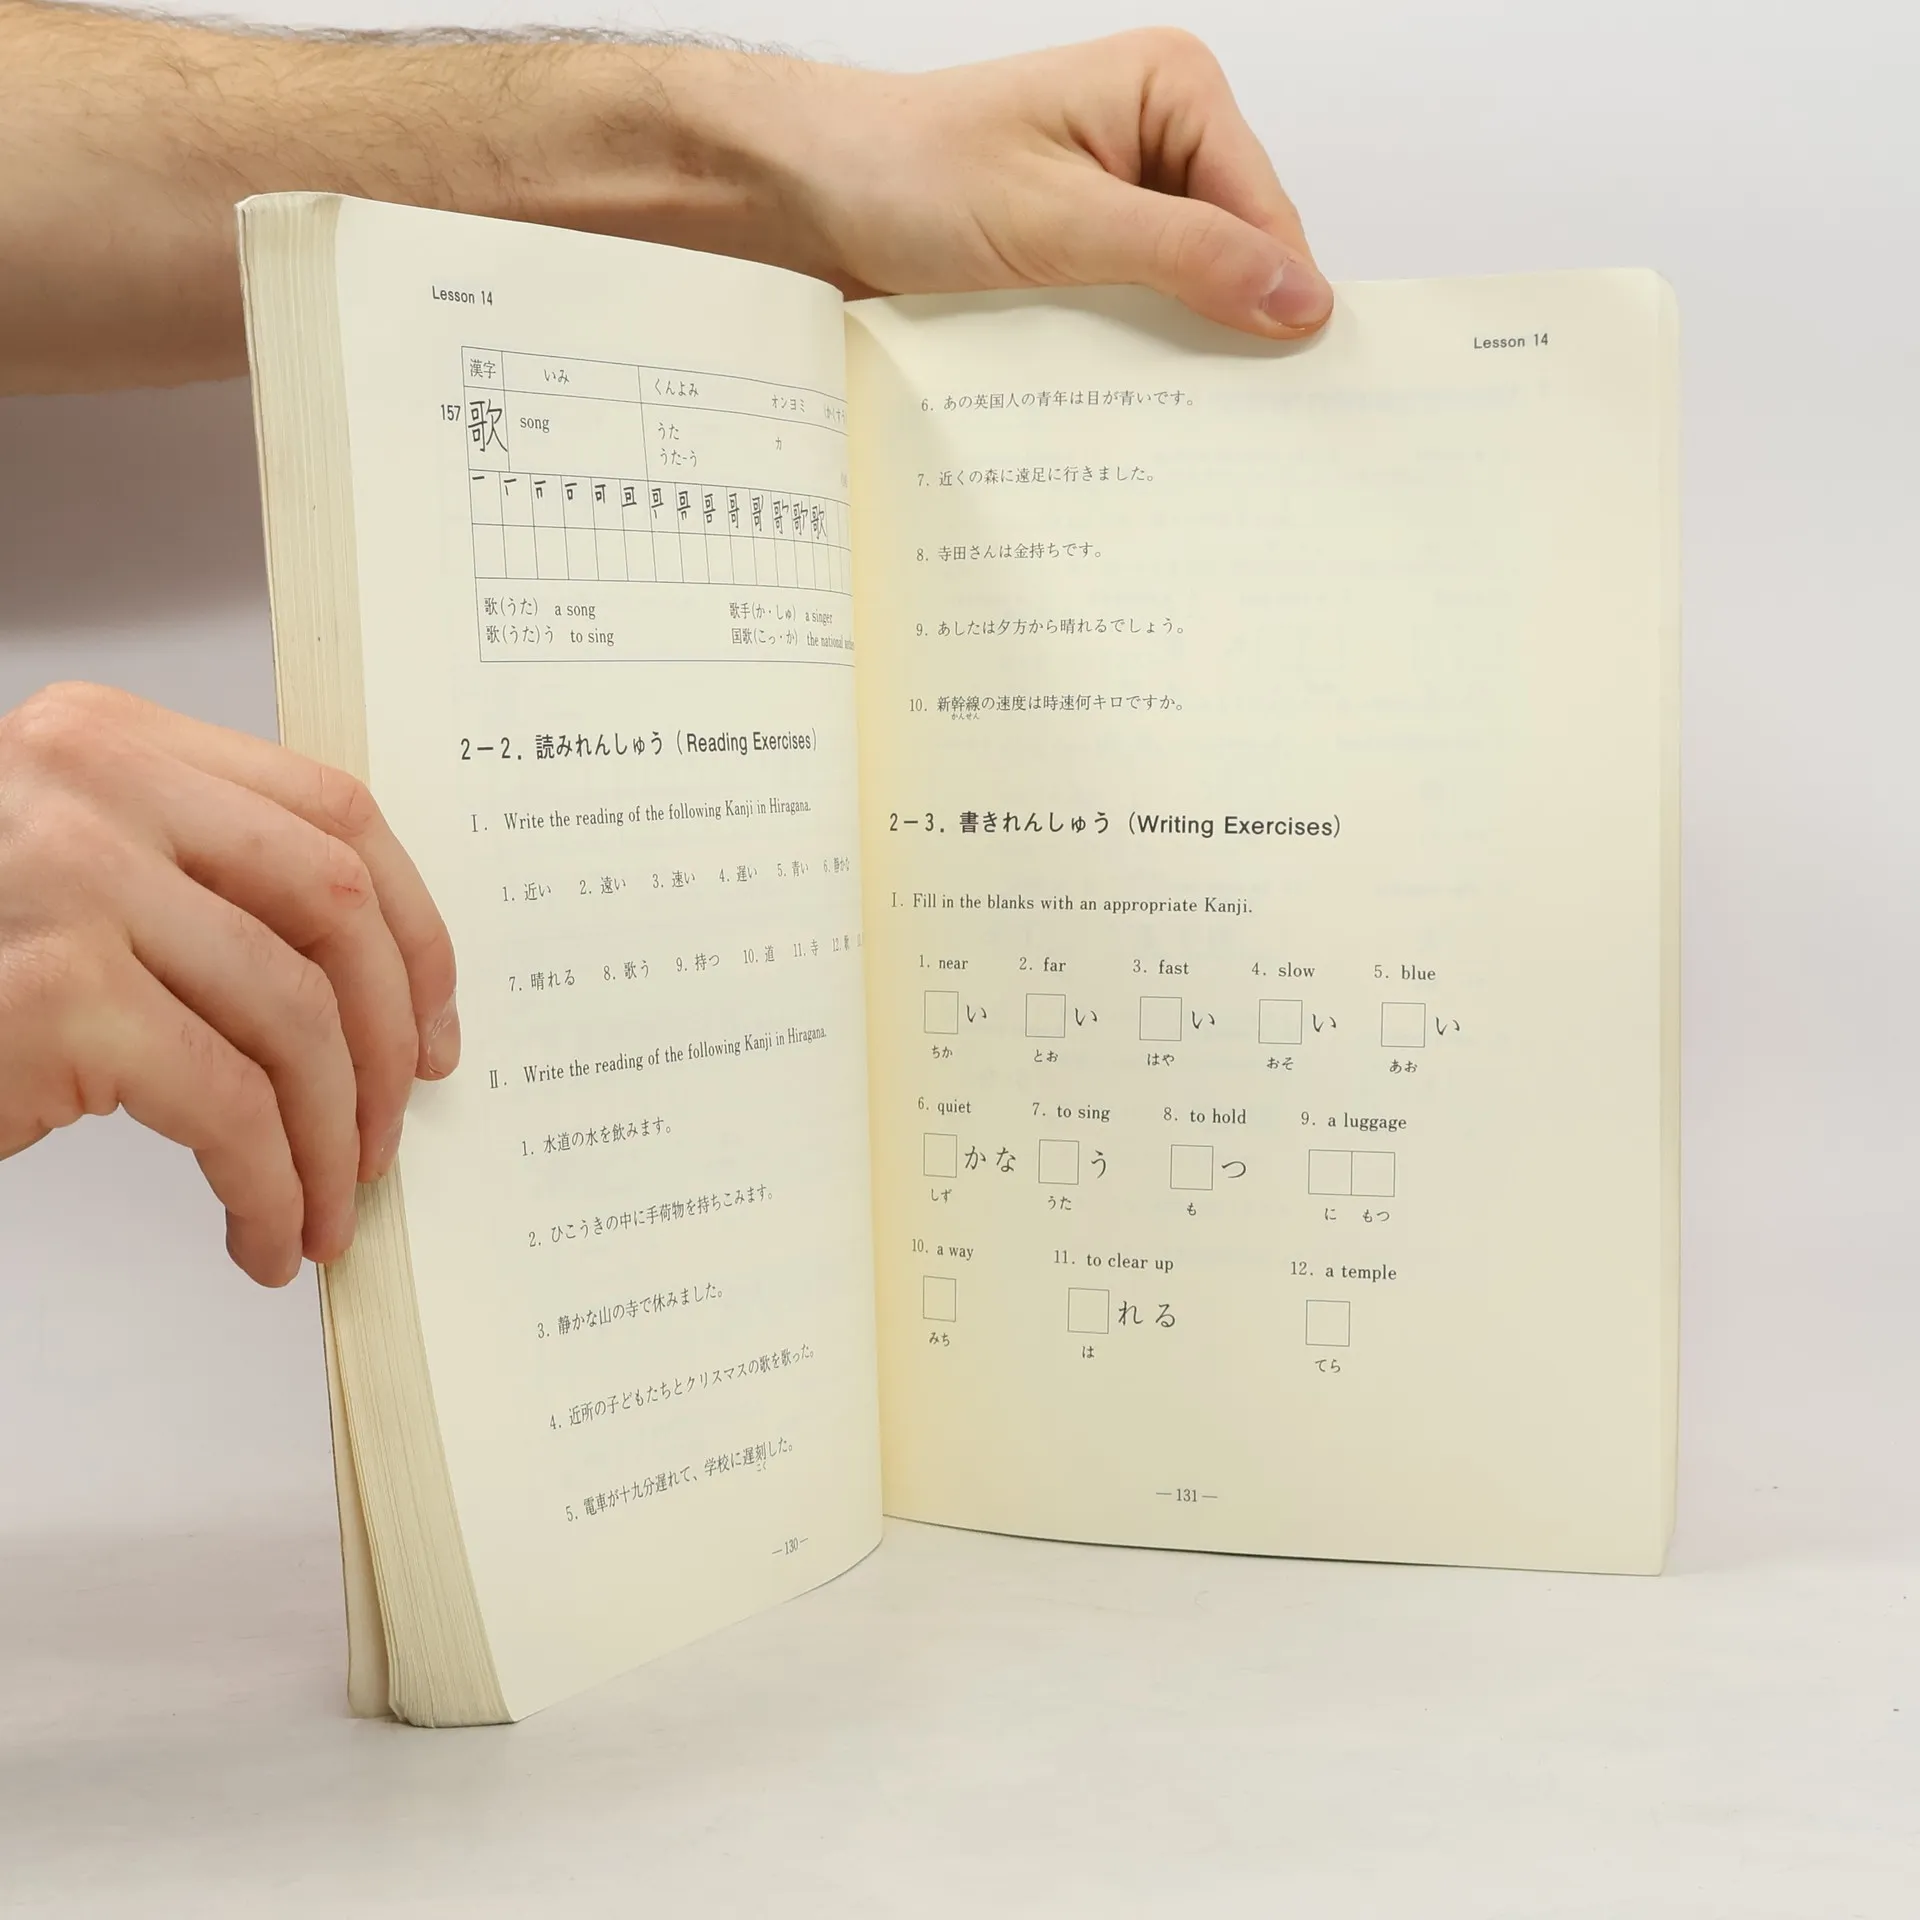 Lesson 14
漢字 いみ くんよみ オンヨミ
157 歌 song うた カ
うた-う
一 歌
歌(うた) a song 歌手(か・しゅ) a singer
歌(うた)う to sing 国歌(こっ・か) the national
2－2. 読みれんしゅう (Reading Exercises)
Ⅰ. Write the reading of the following Kanji in Hiragana.
1. 近い 2. 遠い 3. 速い 4. 遅い 5. 青い 6. 静かな
7. 晴れる 8. 歌う 9. 持つ 10. 道 11. 寺 12. 歌
Ⅱ. Write the reading of the following Kanji in Hiragana.
1. 水道の水を飲みます。
2. ひこうきの中に手荷物を持ちこみます。
3. 静かな山の寺で休みました。
4. 近所の子どもたちとクリスマスの歌を歌った。
5. 電車が十九分遅れて、学校に遅刻した。
こく
—130—
Lesson 14
6. あの英国人の青年は目が青いです。
7. 近くの森に遠足に行きました。
8. 寺田さんは金持ちです。
9. あしたは夕方から晴れるでしょう。
10. 新幹線の速度は時速何キロですか。
かんせん
2－3. 書きれんしゅう (Writing Exercises)
Ⅰ. Fill in the blanks with an appropriate Kanji.
1. near 2. far 3. fast 4. slow 5. blue
い い い い い
ちか とお はや おそ あお
6. quiet 7. to sing 8. to hold 9. a luggage
かな う つ
しず うた も に もつ
10. a way 11. to clear up 12. a temple
れる
みち は てら
—131—